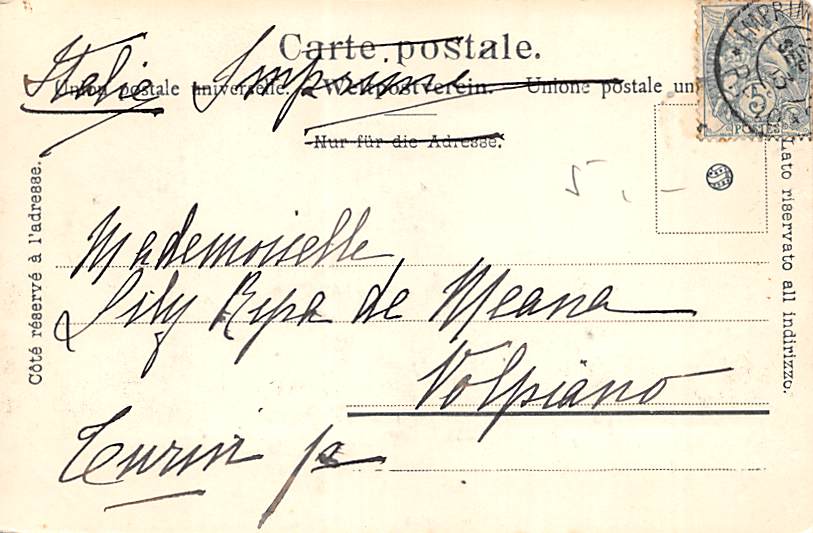 Carte postale.
Italie Imprimé
Union postale universelle. - Weltpostverein. - Unione postale un
Nur für die Adresse.
5.-
Côté réservé à l'adresse.
Lato riservato all indirizzo.
Mademoiselle
Lily Ripa de Meana
Volpiano
Turin
POSTES
IMPRIM